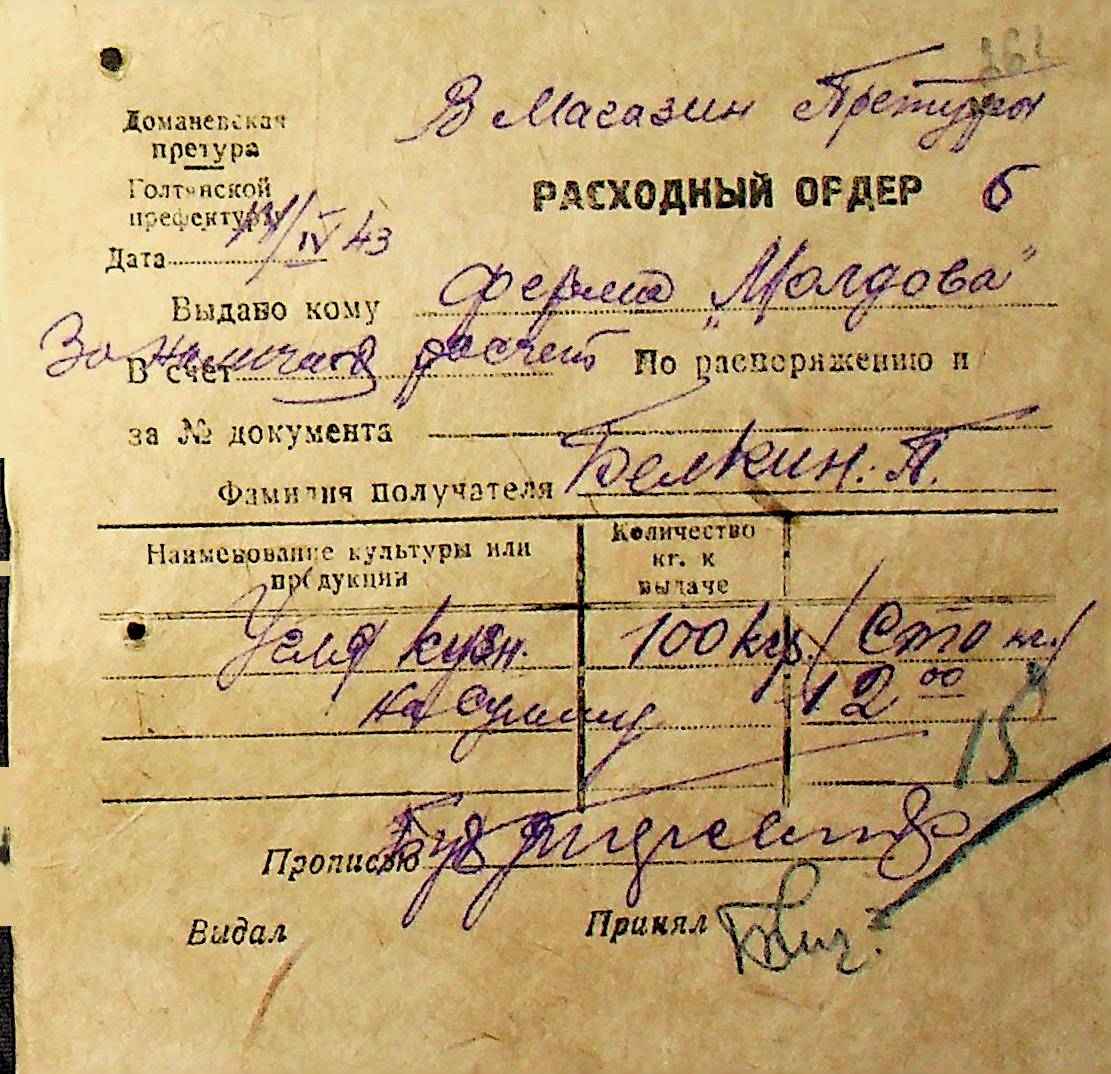 261
В Магазин Претуры
Доманевская
претура
Голтянской
префектуры
РАСХОДНЫЙ ОРДЕР 6
Дата 14/IV 43
Выдано кому ферма „Молдова"
В счет За наличный расчет По распоряжению и
за № документа
Фамилия получателя Белкин. П.
Наименование культуры или
продукции
Количество
кг. к
выдаче
Угля кузн. 100 кгр. /Сто кг./
на сумму 12 00
15
Прописью
Выдал Принял